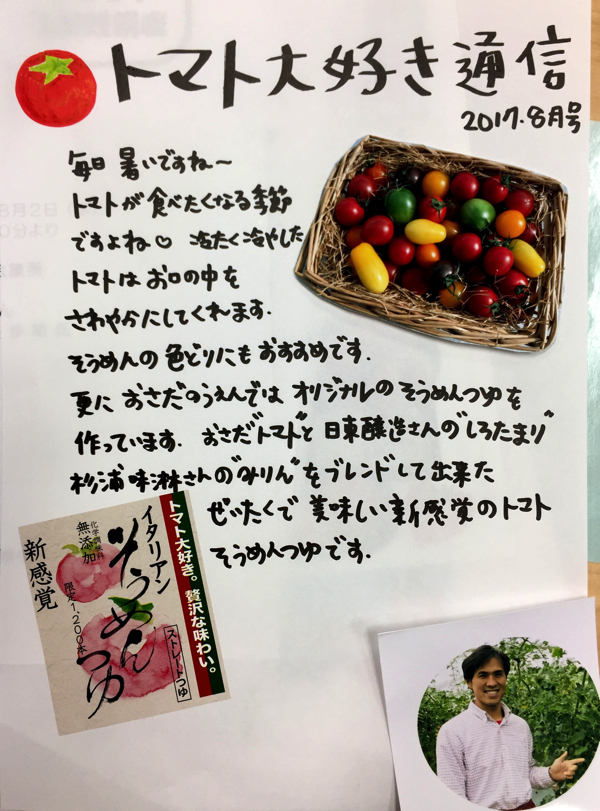 トマト大好き通信
2017.8月号
毎日 暑いですね～
トマトが食べたくなる季節
ですよね♡ 冷たく冷やした
トマトはお口の中を
さわやかにしてくれます.
そうめんの色どりにもおすすめです.
夏に おさだのうえんでは オリジナルのそうめんつゆを
作っています. おさだ"トマト"と 日東醸造さんの"しろたまり"
杉浦味淋さんの"みりん"をブレンドして出来た
ぜいたくで 美味しい新感覚のトマト
そうめんつゆです.
トマト大好き。贅沢な味わい。
イタリアン
そうめんつゆ
ストレートつゆ
化学調味料
無添加
限定1,200本
新感覚
8月2日
0分より